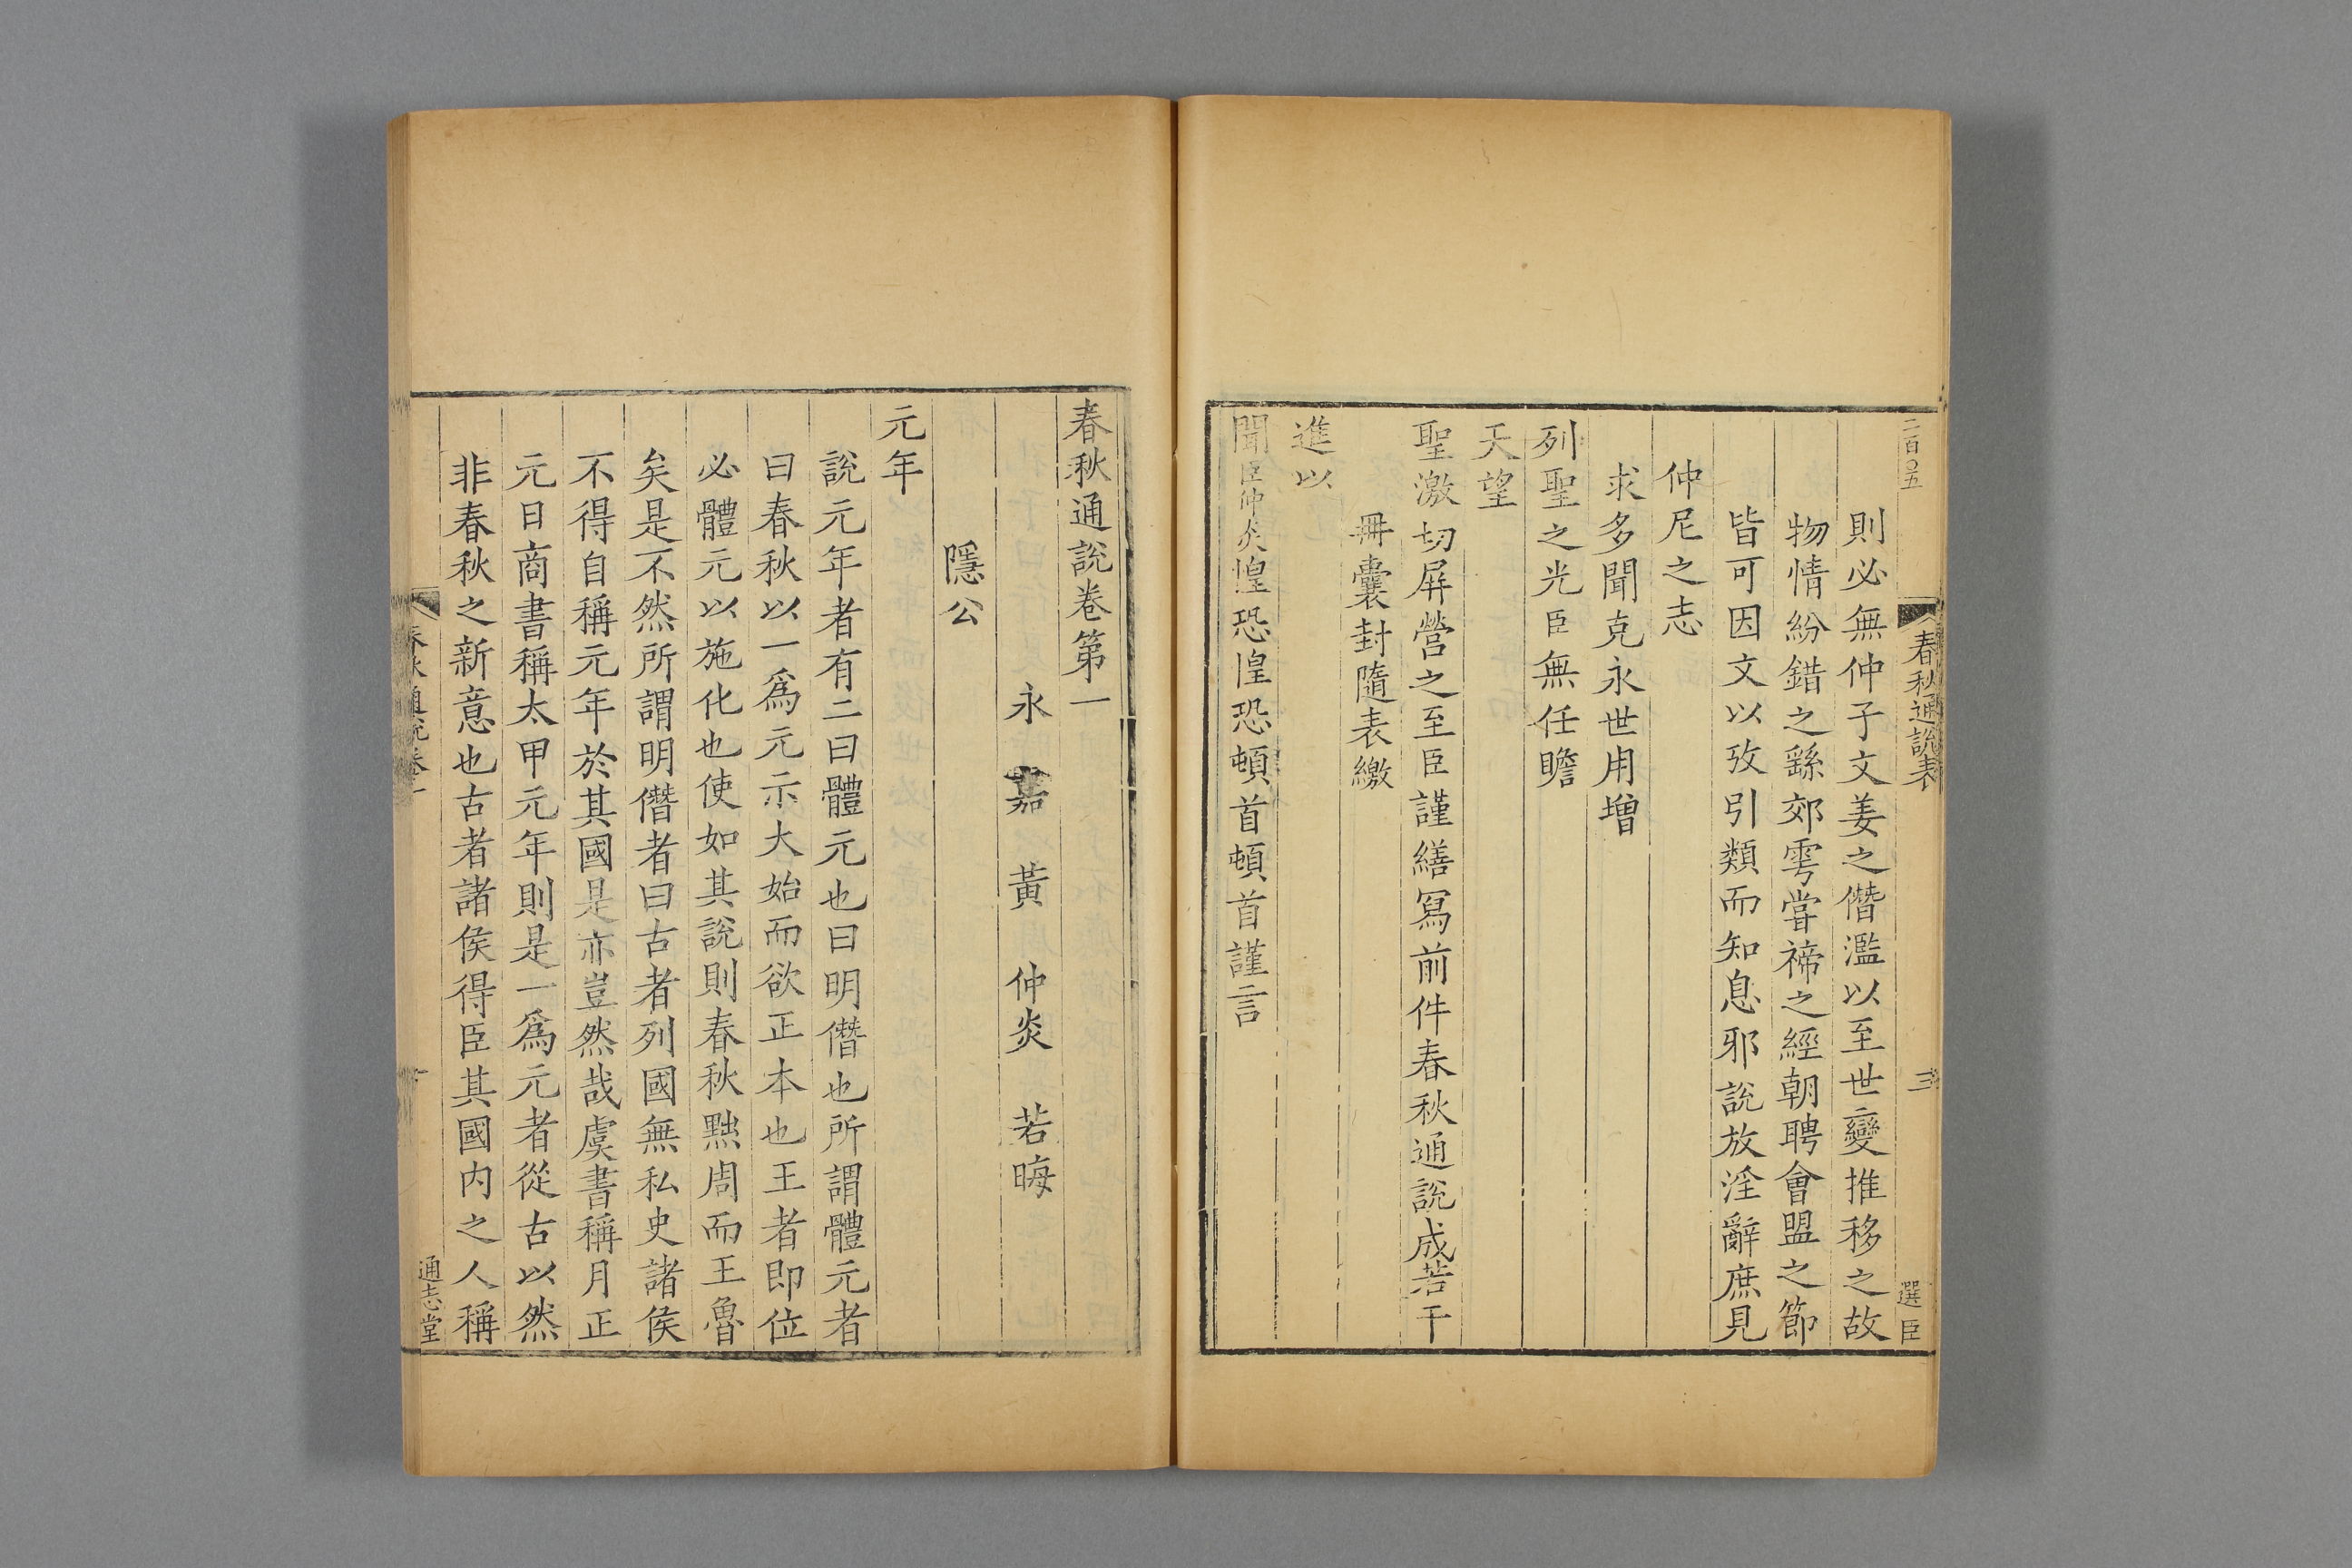 二百〇五
春秋通說表
三
選臣
則必無仲子文姜之僭濫以至世變推移之故
物情紛錯之繇郊雩嘗禘之經朝聘會盟之節
皆可因文以攷引類而知息邪說放淫辭庶見
仲尼之志
求多聞克永世用增
列聖之光臣無任瞻
天望
聖激切屏營之至臣謹繕寫前件春秋通說成若干
冊囊封隨表繳
進以
聞臣仲炎惶恐惶恐頓首頓首謹言
春秋通說卷第一
永嘉黃仲炎若晦
隱公
元年
說元年者有二曰體元也曰明僭也所謂體元者
曰春秋以一爲元示大始而欲正本也王者即位
必體元以施化也使如其說則春秋黜周而王魯
矣是不然所謂明僭者曰古者列國無私史諸侯
不得自稱元年於其國是亦豈然哉虞書稱月正
元日商書稱太甲元年則是一爲元者從古以然
非春秋之新意也古者諸侯得臣其國內之人稱
春秋通說卷一
一
通志堂